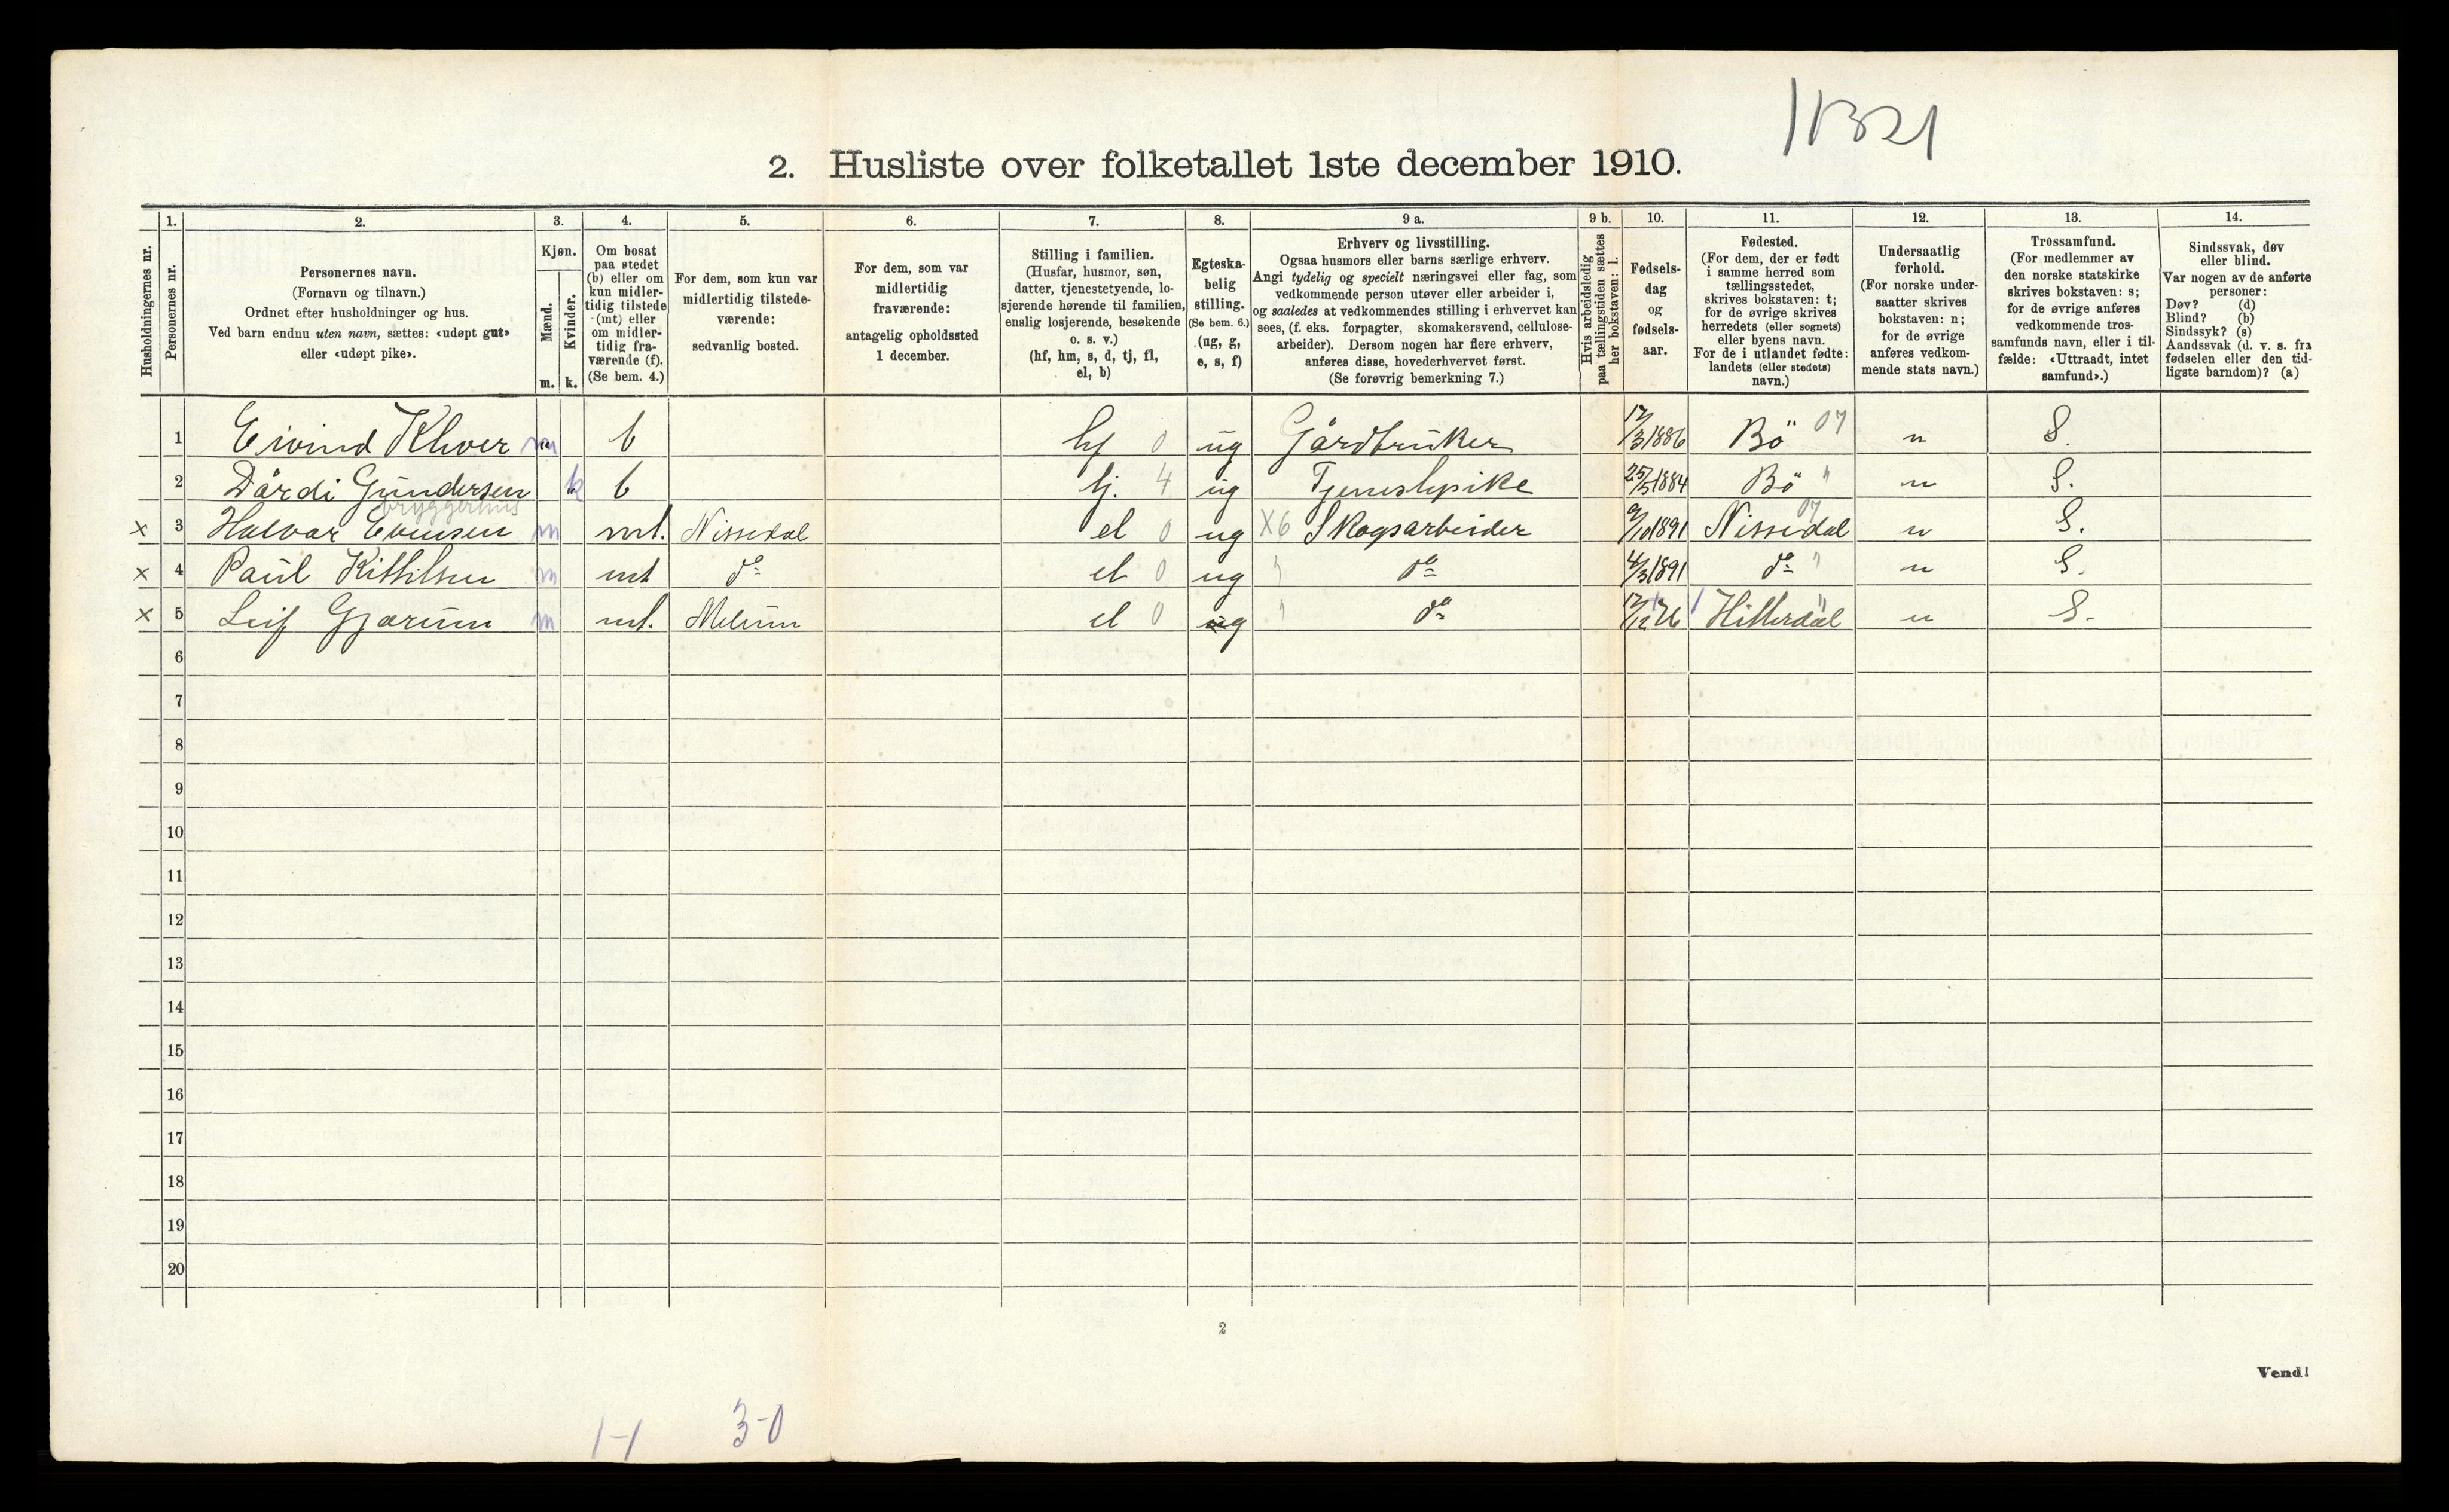 2. Husliste over folketallet 1ste december 1910.
Husholdningernes nr.
1. Personernes nr.
2. Personernes navn.
(Fornavn og tilnavn.)
Ordnet efter husholdninger og hus.
Ved barn endnu uten navn, sættes: «udøpt gut»
eller «udøpt pike».
3. Kjøn.
Mænd. m.
Kvinder. k.
4. Om bosat
paa stedet
(b) eller om
kun midler-
tidig tilstede
(mt) eller
om midler-
tidig fra-
værende (f).
(Se bem. 4.)
5. For dem, som kun var
midlertidig tilstede-
værende:
sedvanlig bosted.
6. For dem, som var
midlertidig
fraværende:
antagelig opholdssted
1 december.
7. Stilling i familien.
(Husfar, husmor, søn,
datter, tjenestetyende, lo-
sjerende hørende til familien,
enslig losjerende, besøkende
o. s. v.)
(hf, hm, s, d, tj, fl,
el, b)
8. Egteska-
belig
stilling.
(Se bem. 6.)
(ug, g,
e, s, f)
9 a. Erhverv og livsstilling.
Ogsaa husmors eller barns særlige erhverv.
Angi tydelig og specielt næringsvei eller fag, som
vedkommende person utøver eller arbeider i,
og saaledes at vedkommendes stilling i erhvervet kan
sees, (f. eks. forpagter, skomakersvend, cellulose-
arbeider). Dersom nogen har flere erhverv,
anføres disse, hovederhvervet først.
(Se forøvrig bemerkning 7.)
9 b. Hvis arbeidsledig
paa tællingstiden sættes
her bokstaven: l.
10. Fødsels-
dag
og
fødsels-
aar.
11. Fødested.
(For dem, der er født
i samme herred som
tællingsstedet,
skrives bokstaven: t;
for de øvrige skrives
herredets (eller sognets)
eller byens navn.
For de i utlandet fødte:
landets (eller stedets)
navn.)
12. Undersaatlig
forhold.
(For norske under-
saatter skrives
bokstaven: n;
for de øvrige
anføres vedkom-
mende stats navn.)
13. Trossamfund.
(For medlemmer av
den norske statskirke
skrives bokstaven: s;
for de øvrige anføres
vedkommende tros-
samfunds navn, eller i til-
fælde: «Uttraadt, intet
samfund».)
14. Sindssvak, døv
eller blind.
Var nogen av de anførte
personer:
Døv? (d)
Blind? (b)
Sindssyk? (s)
Aandssvak (d. v. s. fra
fødselen eller den tid-
ligste barndom)? (a)
1 Eivind Klever m b hf 0 ug Gårdbruker 17/3 1886 Bö 07 n S.
2 Dårdi Gundersen k b tj. 4 ug Tjenestepike 25/5 1884 Bö " n S.
bryggerhus
x 3 Halvar Evensen m mt. Nissedal el 0 ug X6 Skogsarbeider 9/10 1891 Nissedal 07 n S.
x 4 Paul Kittilsen m mt do el 0 ug " do 4/3 1891 do " n S.
x 5 Leif Gjærum m mt. Melum el 0 ug " do 17/12 76 Hitterdal " n S.
6
7
8
9
10
11
12
13
14
15
16
17
18
19
20
2
Vend!
1-1 3-0